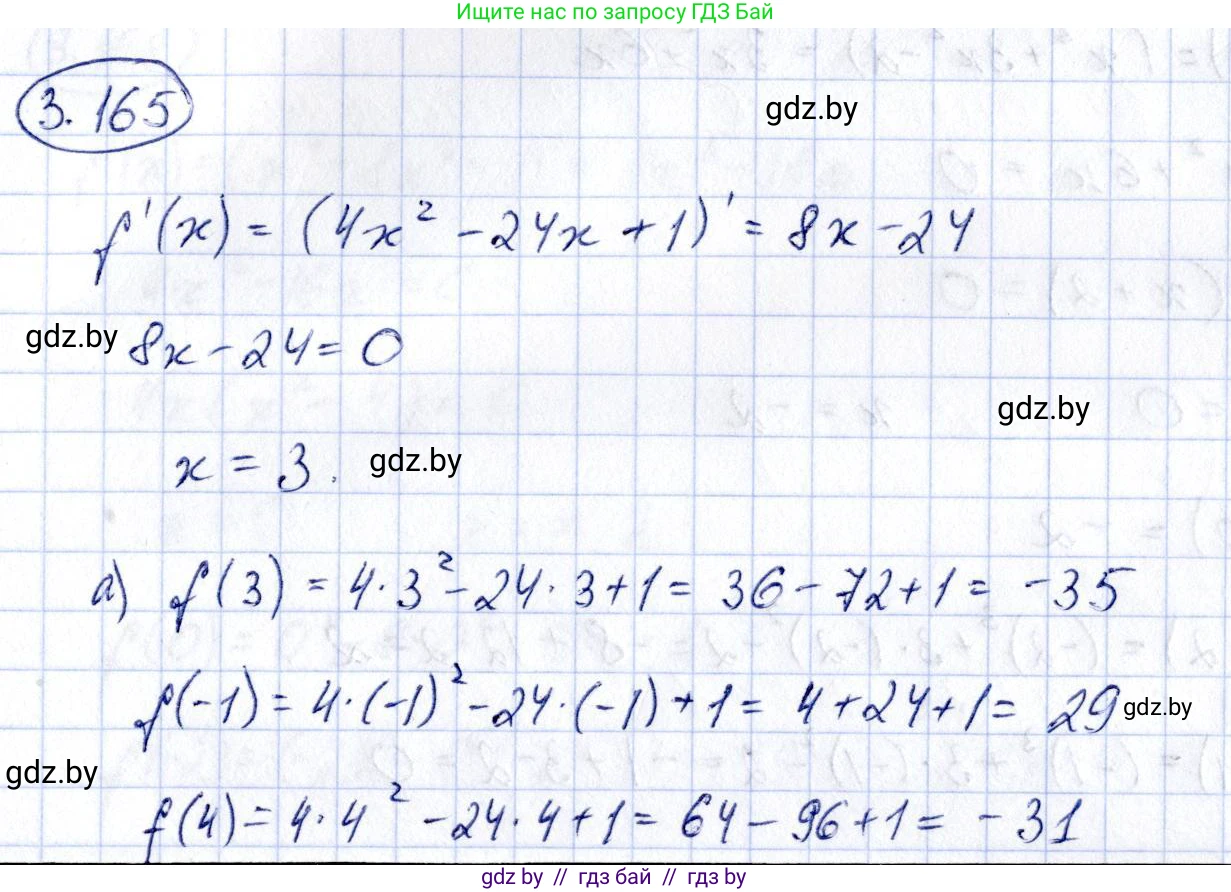 Ищите нас по запросу ГДЗ Бай
3.165
gdz.by
f'(x) = (4x² - 24x + 1)' = 8x - 24
gdz.by
8x - 24 = 0
gdz.by
x = 3.
gdz.by
а) f(3) = 4·3² - 24·3 + 1 = 36 - 72 + 1 = -35
f(-1) = 4·(-1)² - 24·(-1) + 1 = 4 + 24 + 1 = 29
gdz.by
gdz.by
f(4) = 4·4² - 24·4 + 1 = 64 - 96 + 1 = -31
gdz.by // гдз бай // gdz.by